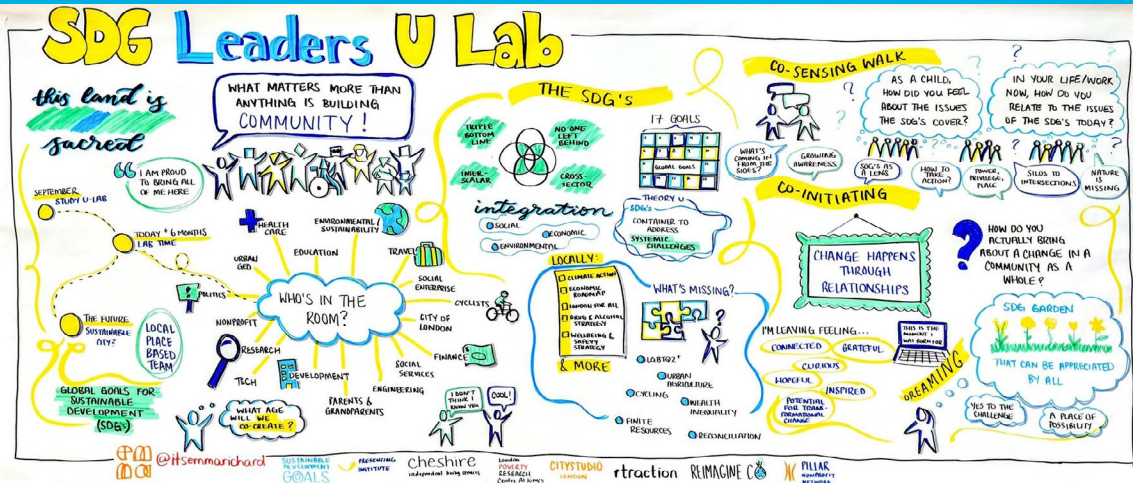 SDG Leaders U Lab
this land is
sacred
WHAT MATTERS MORE THAN
ANYTHING IS BUILDING
COMMUNITY!
I AM PROUD
TO BRING ALL
OF ME HERE
SEPTEMBER
STUDY U-LAB
TODAY + 6 MONTHS
LAB TIME
THE FUTURE
SUSTAINABLE
CITY?
LOCAL
PLACE
BASED
TEAM
GLOBAL GOALS FOR
SUSTAINABLE
DEVELOPMENT
(SDG's)
WHO'S IN THE
ROOM?
HEALTH
CARE
ENVIRONMENTAL/
SUSTAINABILITY
EDUCATION
TRAVEL
URBAN
GEO
POLITICS
SOCIAL
ENTERPRISE
CYCLISTS
NONPROFIT
CITY OF
LONDON
RESEARCH
FINANCE
TECH
DEVELOPMENT
SOCIAL
SERVICES
PARENTS &
GRANDPARENTS
ENGINEERING
WHAT AGE
WILL WE
CO-CREATE?
I DON'T
THINK I
KNOW YOU
COOL!
THE SDG'S
TRIPLE
BOTTOM
LINE
NO ONE
LEFT
BEHIND
INTER-
SCALAR
CROSS
SECTOR
17 GOALS
GLOBAL GOALS
integration
SOCIAL
ECONOMIC
ENVIRONMENTAL
THEORY U
SDG's
CONTAINER TO
ADDRESS
SYSTEMIC
CHALLENGES
LOCALLY:
CLIMATE ACTION
ECONOMIC
ROADMAP
LONDON FOR ALL
DRUG & ALCOHOL
STRATEGY
WELLBEING &
SAFETY
STRATEGY
& MORE
WHAT'S MISSING?
LGBTQ2+
URBAN
AGRICULTURE
CYCLING
WEALTH
INEQUALITY
FINITE
RESOURCES
RECONCILIATION
CO-SENSING WALK
AS A CHILD,
HOW DID YOU FEEL
ABOUT THE ISSUES
THE SDG'S COVER?
IN YOUR LIFE/WORK
NOW, HOW DO YOU
RELATE TO THE ISSUES
OF THE SDG'S TODAY?
WHAT'S
COMING IN
FROM THE
SIDES?
GROWING
AWARENESS
SDG'S AS
A LENS
HOW TO
TAKE
ACTION?
POWER,
PRIVILEGE,
PLACE
SILOS TO
INTERSECTIONS
NATURE
IS
MISSING
CO-INITIATING
CHANGE HAPPENS
THROUGH
RELATIONSHIPS
HOW DO YOU
ACTUALLY BRING
ABOUT A CHANGE IN A
COMMUNITY AS A
WHOLE?
I'M LEAVING FEELING...
CONNECTED
GRATEFUL
CURIOUS
HOPEFUL
INSPIRED
POTENTIAL
FOR TRANS-
FORMATIONAL
CHANGE
THIS IS THE
MOMENT I
WAS BORN FOR
DREAMING
SDG GARDEN
THAT CAN BE APPRECIATED
BY ALL
YES TO THE
CHALLENGE
A PLACE OF
POSSIBILITY
@itsemmarichard
SUSTAINABLE
DEVELOPMENT
GOALS
PRESENCING
INSTITUTE
cheshire
independent living services
London
POVERTY
RESEARCH
Centre At King's
CITYSTUDIO
LONDON
rtraction
REIMAGINE CO
PILLAR
NONPROFIT
NETWORK